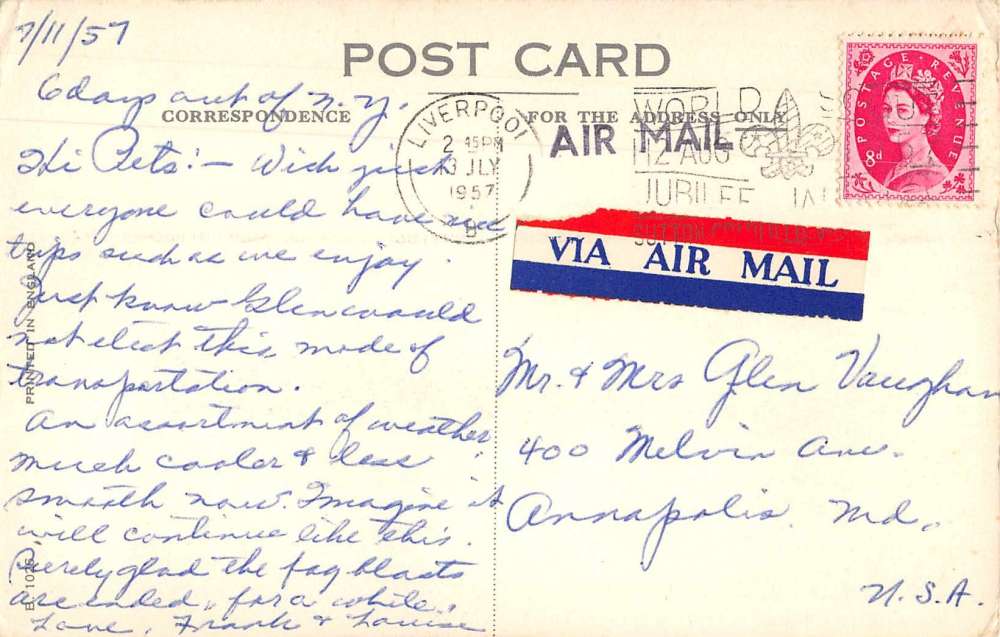 7/11/57
POST CARD
6 days out of N.Y.
CORRESPONDENCE
FOR THE ADDRESS ONLY
Hi Pets:- Wish just
everyone could have sea
trips such as we enjoy.
Just know Glen would
not elect this mode of
transportation.
An assortment of weather,
much cooler & less
smooth now. Imagine it
will continue like this.
Surely glad the fog blasts
are ended, for a while.
Love, Frank & Louise
PRINTED IN ENGLAND
LIVERPOOL
2 45PM
13 JLY
1957
B
AIR MAIL
WORLD
12 AUG
JUBILEE
SUTTON
POSTAGE REVENUE
8d
VIA AIR MAIL
Mr. & Mrs Glen Vaughan
400 Melvin Ave.
Annapolis, Md.
U.S.A.